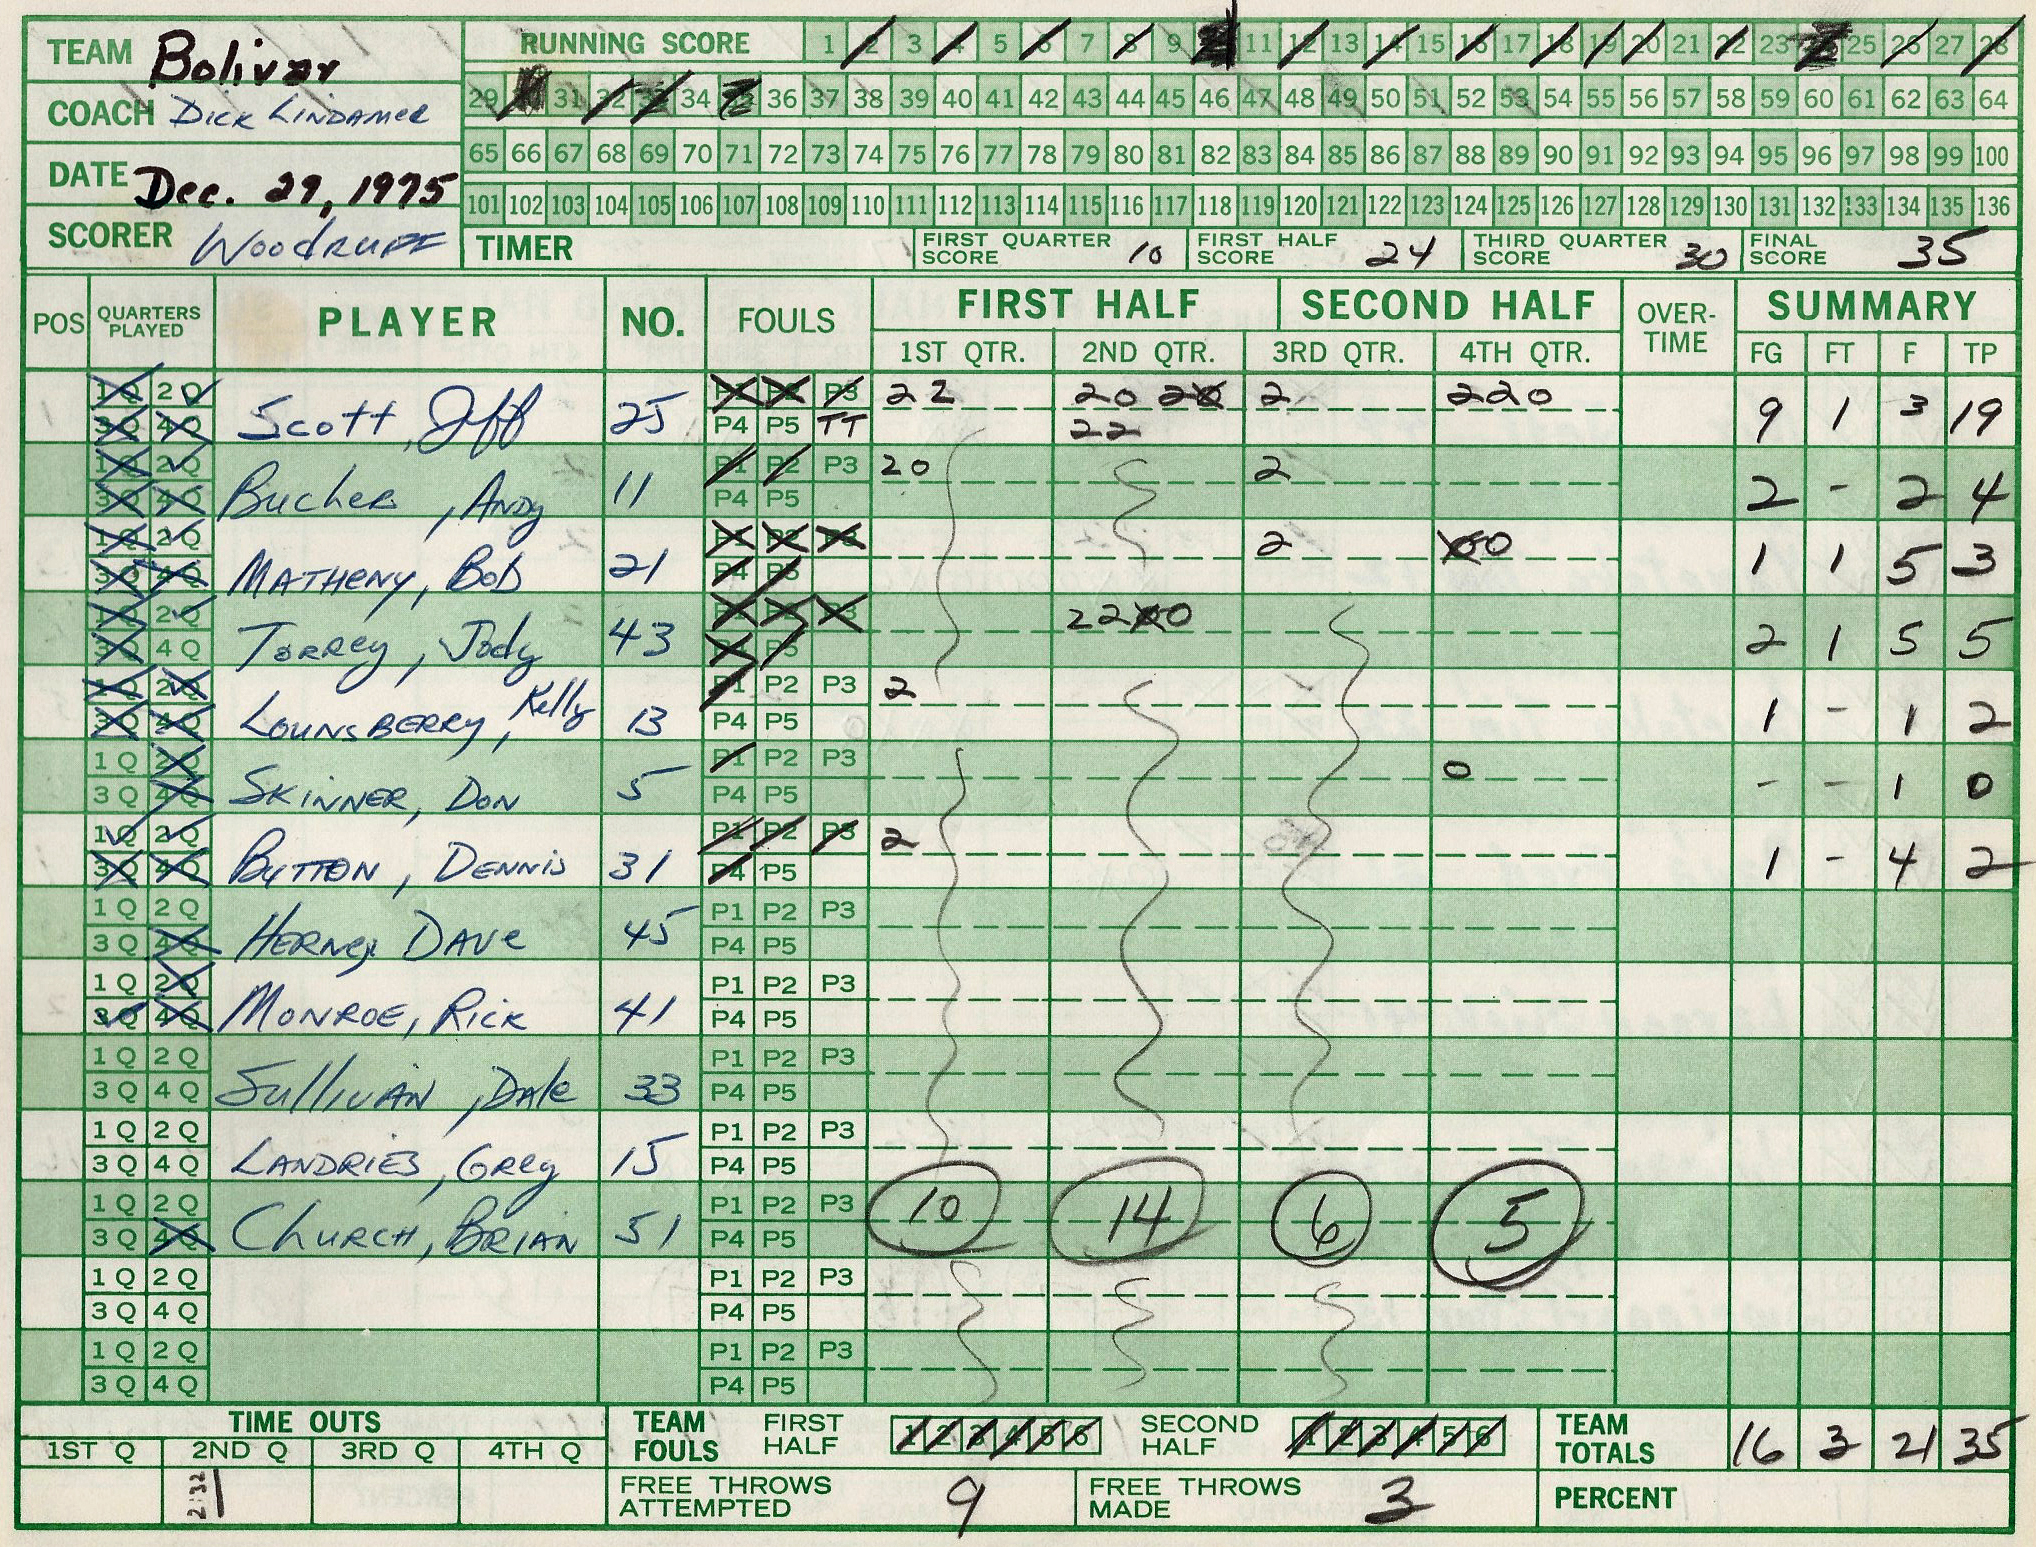 TEAM Bolivar
COACH Dick Lindamer
DATE Dec. 29, 1975
SCORER Woodruff
RUNNING SCORE 1 2 3 4 5 6 7 8 9 11 12 13 14 15 16 17 18 19 20 21 22 23 25 26 27 28
29 31 32 33 34 35 36 37 38 39 40 41 42 43 44 45 46 47 48 49 50 51 52 53 54 55 56 57 58 59 60 61 62 63 64
65 66 67 68 69 70 71 72 73 74 75 76 77 78 79 80 81 82 83 84 85 86 87 88 89 90 91 92 93 94 95 96 97 98 99 100
101 102 103 104 105 106 107 108 109 110 111 112 113 114 115 116 117 118 119 120 121 122 123 124 125 126 127 128 129 130 131 132 133 134 135 136
TIMER FIRST QUARTER SCORE 10 FIRST HALF SCORE 24 THIRD QUARTER SCORE 30 FINAL SCORE 35
POS QUARTERS PLAYED PLAYER NO. FOULS FIRST HALF SECOND HALF OVER-TIME SUMMARY
1ST QTR. 2ND QTR. 3RD QTR. 4TH QTR. FG FT F TP
1 Q 2 Q P1 P2 P3 22 20 20 2 220
3 Q 4 Q Scott, Jeff 25 P4 P5 TT 22 9 1 3 19
1 Q 2 Q P1 P2 P3 20 2
3 Q 4 Q Bucher, Andy 11 P4 P5 2 - 2 4
1 Q 2 Q P1 P2 P3 2 000
3 Q 4 Q Matheny, Bob 21 P4 P5 1 1 5 3
1 Q 2 Q P1 P2 P3 2200
3 Q 4 Q Torrey, Jody 43 P4 P5 2 1 5 5
1 Q 2 Q P1 P2 P3 2
3 Q 4 Q Lounsberry, Kelly 13 P4 P5 1 - 1 2
1 Q 2 Q P1 P2 P3 0
3 Q 4 Q Skinner, Don 5 P4 P5 - - 1 0
1 Q 2 Q P1 P2 P3 2
3 Q 4 Q Button, Dennis 31 P4 P5 1 - 4 2
1 Q 2 Q P1 P2 P3
3 Q 4 Q Herney Dave 45 P4 P5
1 Q 2 Q P1 P2 P3
3 Q 4 Q Monroe, Rick 41 P4 P5
1 Q 2 Q P1 P2 P3
3 Q 4 Q Sullivan, Dale 33 P4 P5
1 Q 2 Q P1 P2 P3
3 Q 4 Q Landries, Greg 15 P4 P5
1 Q 2 Q P1 P2 P3 10 14 6 5
3 Q 4 Q Church, Brian 51 P4 P5
1 Q 2 Q P1 P2 P3
3 Q 4 Q P4 P5
1 Q 2 Q P1 P2 P3
3 Q 4 Q P4 P5
TIME OUTS TEAM FOULS FIRST HALF 1 2 3 4 5 6 SECOND HALF 1 2 3 4 5 6 TEAM TOTALS 16 3 21 35
1ST Q 2ND Q 3RD Q 4TH Q
2:32 FREE THROWS ATTEMPTED 9 FREE THROWS MADE 3 PERCENT